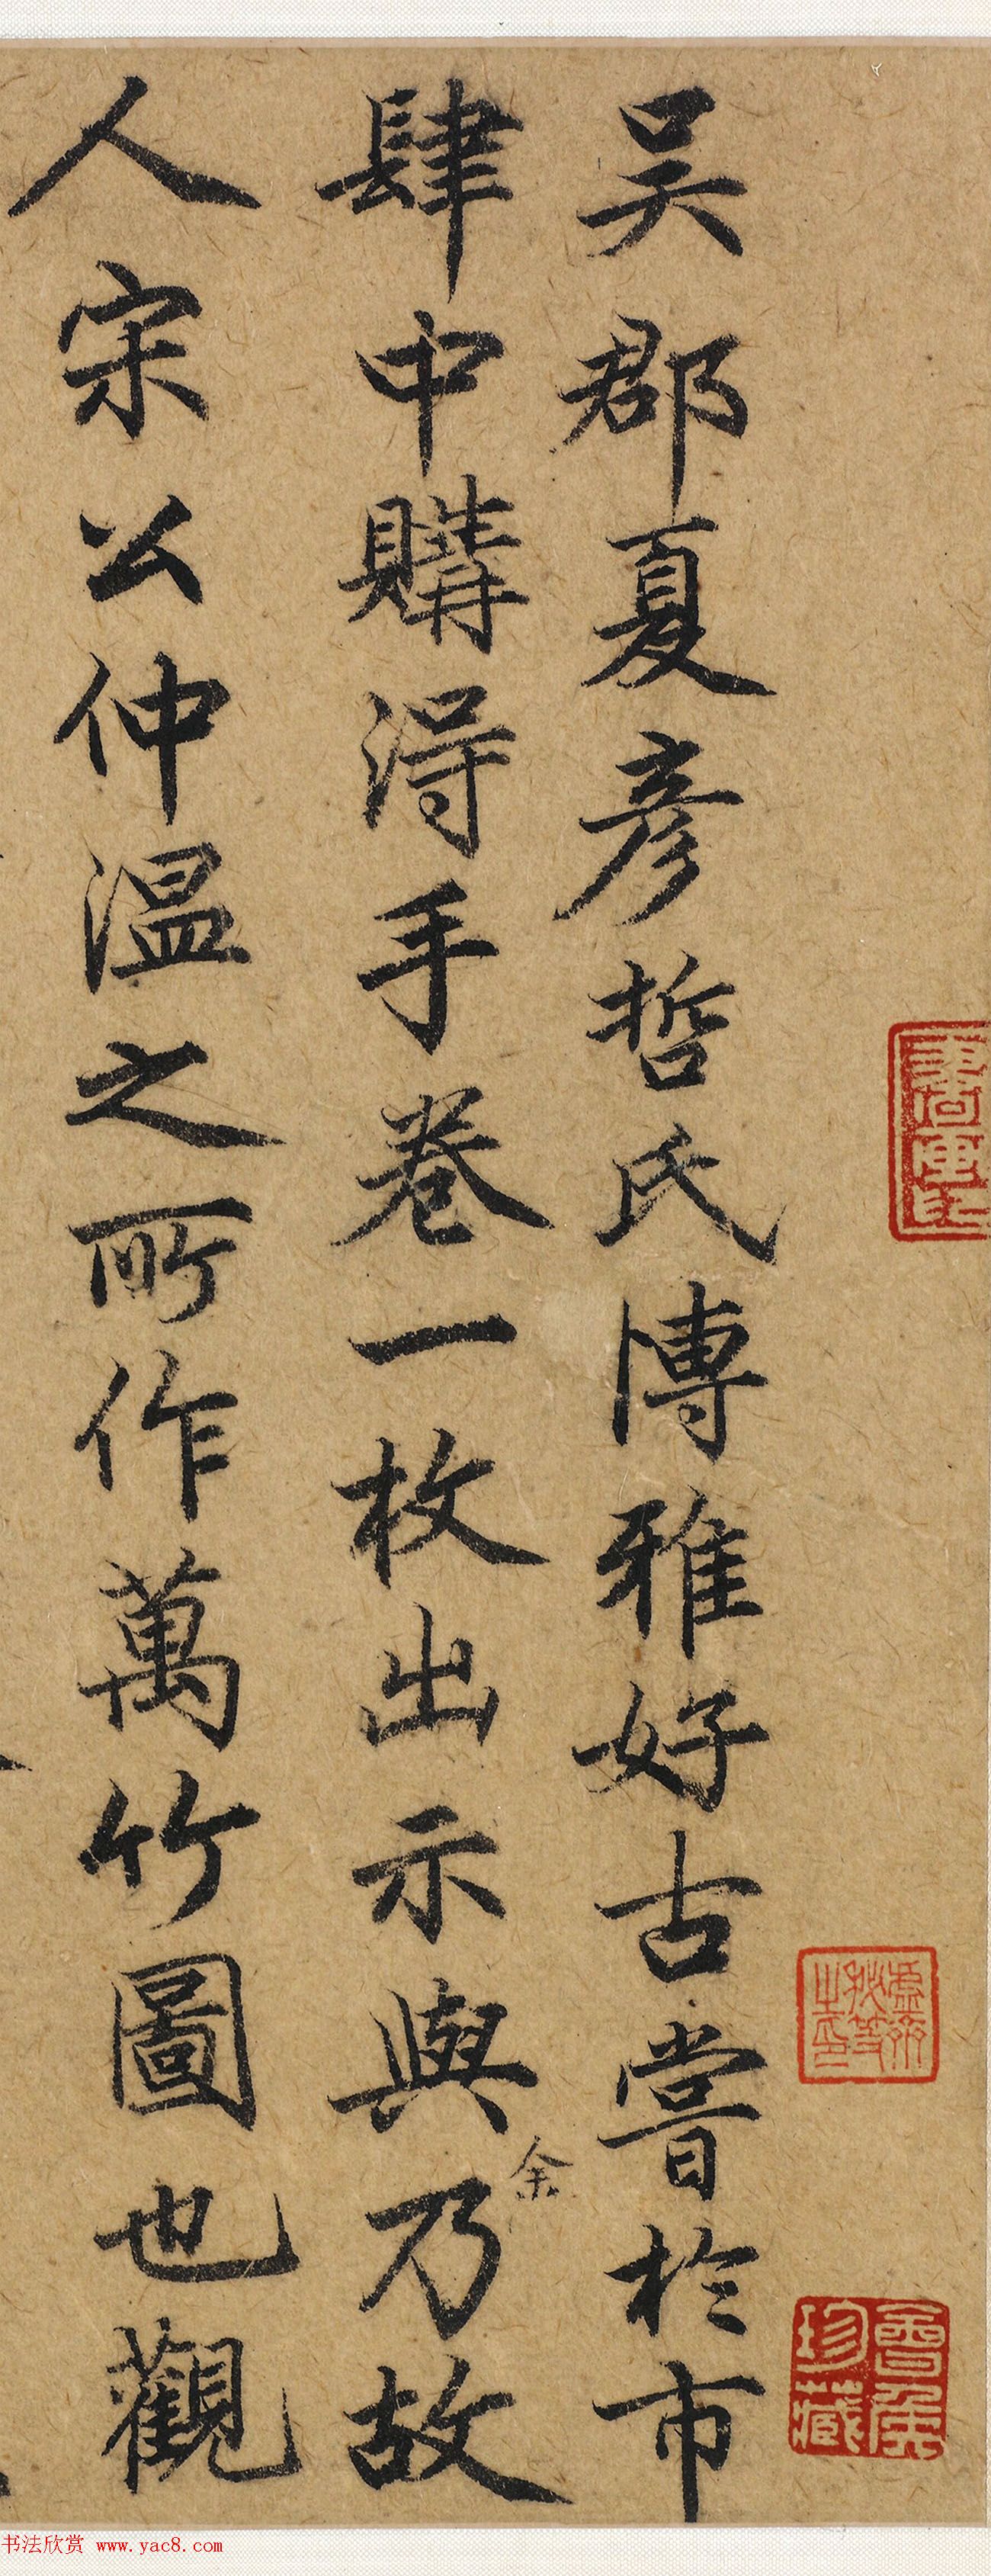 吴郡夏彦哲氏博雅好古嘗於市
肆中購得手卷一枚出示與余乃故
人宋公仲温之所作萬竹圖也觀
虛齋秘笈之印
珍藏
书法欣赏 www.yac8.com